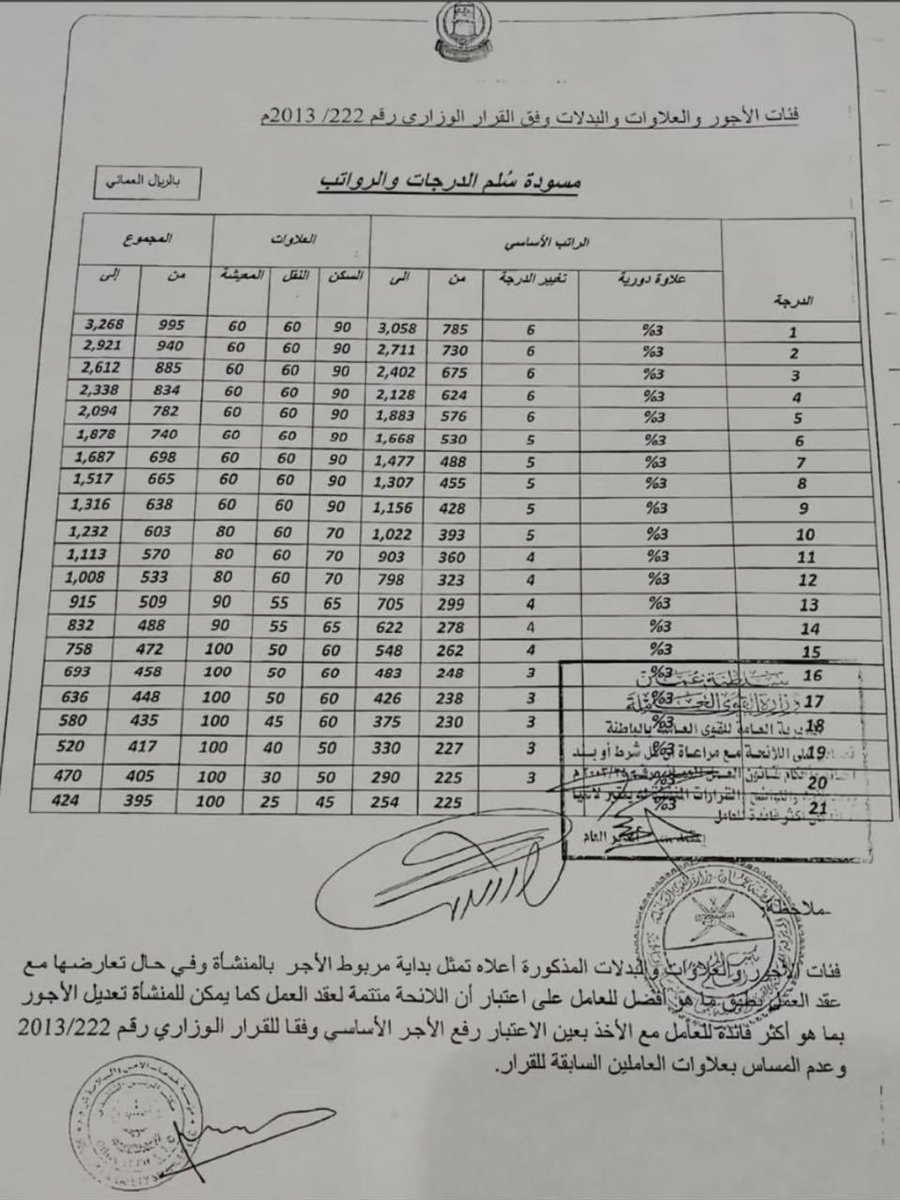 فئات الأجور والعلاوات والبدلات وفق القرار الوزاري رقم 222/ 2013م
مسودة سُلم الدرجات والرواتب
بالريال العماني
الدرجة الراتب الأساسي العلاوات المجموع
علاوة دورية تغيير الدرجة من الى السكن النقل المعيشة من إلى
1 %3 6 785 3,058 90 60 60 995 3,268
2 %3 6 730 2,711 90 60 60 940 2,921
3 %3 6 675 2,402 90 60 60 885 2,612
4 %3 6 624 2,128 90 60 60 834 2,338
5 %3 6 576 1,883 90 60 60 782 2,094
6 %3 5 530 1,668 90 60 60 740 1,878
7 %3 5 488 1,477 90 60 60 698 1,687
8 %3 5 455 1,307 90 60 60 665 1,517
9 %3 5 428 1,156 90 60 60 638 1,316
10 %3 5 393 1,022 70 60 80 603 1,232
11 %3 4 360 903 70 60 80 570 1,113
12 %3 4 323 798 70 60 80 533 1,008
13 %3 4 299 705 65 55 90 509 915
14 %3 4 278 622 65 55 90 488 832
15 %3 4 262 548 60 50 100 472 758
16 %3 3 248 483 60 50 100 458 693
17 %3 3 238 426 60 50 100 448 636
18 %3 3 230 375 60 45 100 435 580
19 %3 3 227 330 50 40 100 417 520
20 %3 3 225 290 50 30 100 405 470
21 %3 225 254 45 25 100 395 424
سلطنة عمان
وزارة القوى العاملة
المديرية العامة للقوى العاملة بالباطنة
على اللائحة مع مراعاة أن كل شرط أو بند
أكثر فائدة للعامل
المدير العام
ملاحظة
فئات الأجور والعلاوات والبدلات المذكورة أعلاه تمثل بداية مربوط الأجر بالمنشأة وفي حال تعارضها مع
عقد العمل يطبق ما هو أفضل للعامل على اعتبار أن اللائحة متتمة لعقد العمل كما يمكن للمنشأة تعديل الأجور
بما هو أكثر فائدة للعامل مع الأخذ بعين الاعتبار رفع الأجر الأساسي وفقا للقرار الوزاري رقم 2013/222
وعدم المساس بعلاوات العاملين السابقة للقرار.